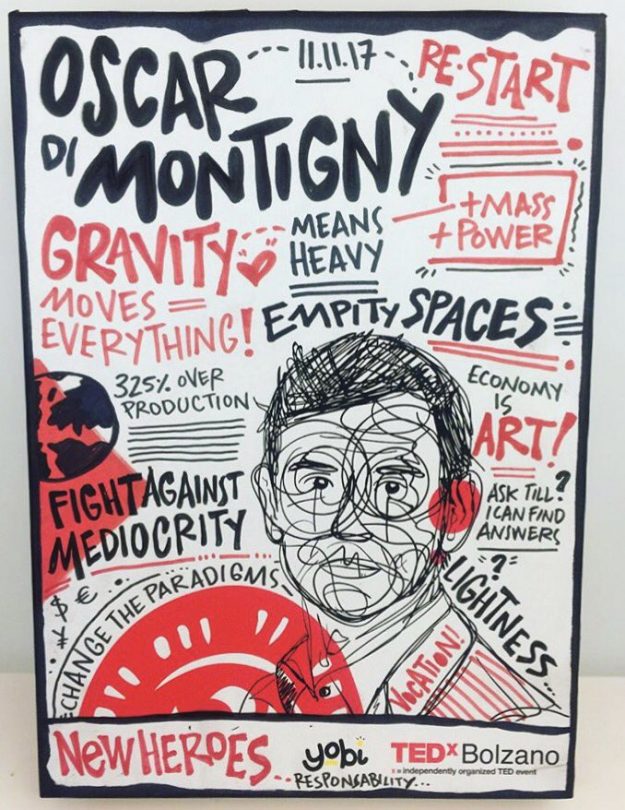 OSCAR
DI MONTIGNY
11.11.17
RE·START
GRAVITY
MEANS
HEAVY
+MASS
+POWER
MOVES =
EVERYTHING!
EMPITY SPACES
325% OVER
PRODUCTION
ECONOMY
IS
ART!
FIGHT AGAINST
MEDIOCRITY
ASK TILL?
I CAN FIND
ANSWERS
"?"
LIGHTNESS...
$ €
¥
CHANGE THE PARADIGMS
VOCATION!
NEW HEROES...
yobi
RESPONSABILITY...
TEDx Bolzano
x = independently organized TED event